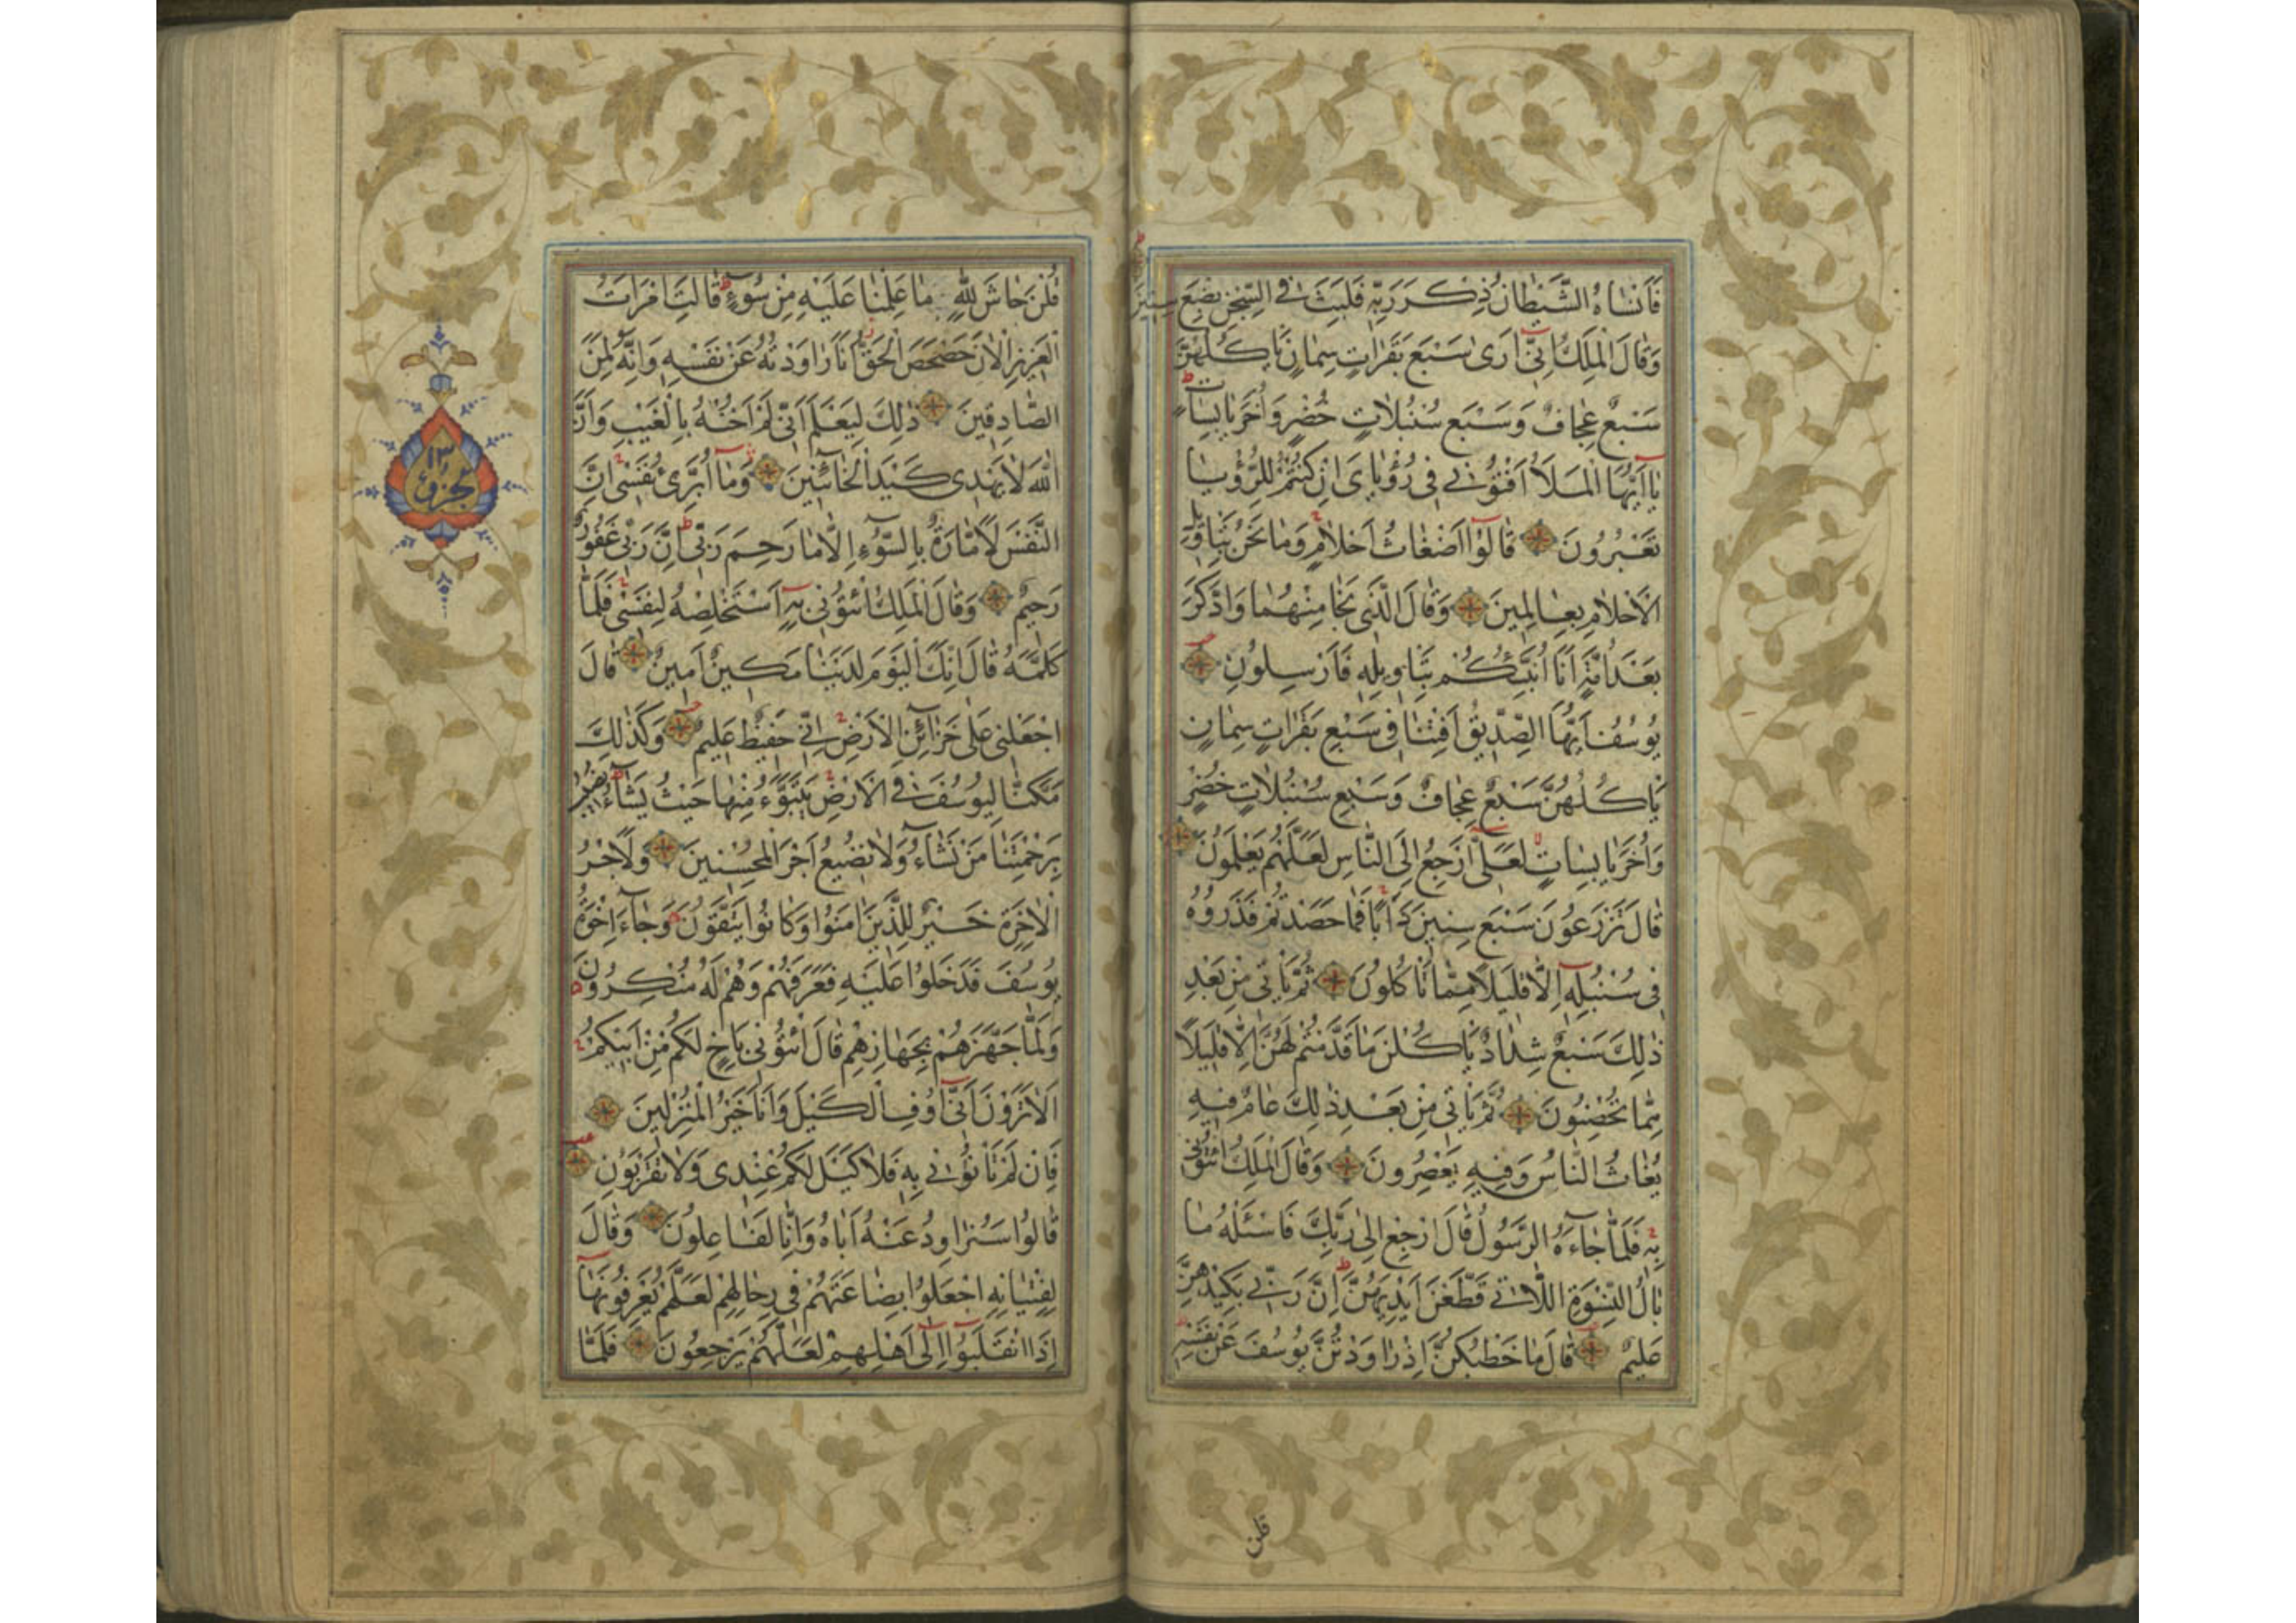 فَاَنْسٰاهُ الشَّيْطٰانُ ذِكْرَ رَبِّهِ فَلَبِثَ فِى السِّجْنِ بِضْعَ سِنِينَ
وَقٰالَ الْمَلِكُ اِنِّىٓ اَرٰى سَبْعَ بَقَرٰاتٍ سِمٰانٍ يَاْكُلُهُنَّ
سَبْعٌ عِجٰافٌ وَسَبْعَ سُنْبُلاٰتٍ خُضْرٍ وَاُخَرَ يٰابِسٰاتٍ
يٰٓا اَيُّهَا الْمَلَاُ اَفْتُونِى فِى رُؤْيٰاىَ اِنْ كُنْتُمْ لِلرُّؤْيٰا
تَعْبُرُونَ قٰالُوٓا اَضْغٰاثُ اَحْلاٰمٍ وَمٰا نَحْنُ بِتَاْوِيلِ
الْاَحْلاٰمِ بِعٰالِمِينَ وَقٰالَ الَّذِى نَجٰا مِنْهُمٰا وَادَّكَرَ
بَعْدَ اُمَّةٍ اَنَا اُنَبِّئُكُمْ بِتَاْوِيلِهِ فَاَرْسِلُونِ
يُوسُفُ اَيُّهَا الصِّدِّيقُ اَفْتِنٰا فِى سَبْعِ بَقَرٰاتٍ سِمٰانٍ
يَاْكُلُهُنَّ سَبْعٌ عِجٰافٌ وَسَبْعِ سُنْبُلاٰتٍ خُضْرٍ
وَاُخَرَ يٰابِسٰاتٍ لَعَلِّىٓ اَرْجِعُ اِلَى النّٰاسِ لَعَلَّهُمْ يَعْلَمُونَ
قٰالَ تَزْرَعُونَ سَبْعَ سِنِينَ دَاَبًا فَمٰا حَصَدْتُمْ فَذَرُوهُ
فِى سُنْبُلِهِٓ اِلّٰا قَلِيلًا مِمّٰا تَاْكُلُونَ ثُمَّ يَاْتِى مِنْ بَعْدِ
ذٰلِكَ سَبْعٌ شِدٰادٌ يَاْكُلْنَ مٰا قَدَّمْتُمْ لَهُنَّ اِلّٰا قَلِيلًا
مِمّٰا تُحْصِنُونَ ثُمَّ يَاْتِى مِنْ بَعْدِ ذٰلِكَ عٰامٌ فِيهِ
يُغٰاثُ النّٰاسُ وَفِيهِ يَعْصِرُونَ وَقٰالَ الْمَلِكُ ائْتُونِى
بِهِ فَلَمّٰا جٰٓاءَهُ الرَّسُولُ قٰالَ ارْجِعْ اِلٰى رَبِّكَ فَاسْئَلْهُ مٰا
بٰالُ النِّسْوَةِ اللّٰاتِى قَطَّعْنَ اَيْدِيَهُنَّ اِنَّ رَبِّى بِكَيْدِهِنَّ
عَلِيمٌ قٰالَ مٰا خَطْبُكُنَّ اِذْ رٰاوَدْتُنَّ يُوسُفَ عَنْ نَفْسِهِ
قلن
قُلْنَ حٰاشَ لِلّٰهِ مٰا عَلِمْنٰا عَلَيْهِ مِنْ سُوٓءٍ قٰالَتِ امْرَاَتُ
الْعَزِيزِ الْاٰنَ حَصْحَصَ الْحَقُّ اَنَا رٰاوَدْتُهُ عَنْ نَفْسِهِ وَاِنَّهُ لَمِنَ
الصّٰادِقِينَ ذٰلِكَ لِيَعْلَمَ اَنِّى لَمْ اَخُنْهُ بِالْغَيْبِ وَاَنَّ
اللّٰهَ لاٰ يَهْدِى كَيْدَ الْخٰٓائِنِينَ وَمٰٓا اُبَرِّئُ نَفْسِىٓ اِنَّ
النَّفْسَ لَاَمّٰارَةٌ بِالسُّوٓءِ اِلّٰا مٰا رَحِمَ رَبِّى اِنَّ رَبِّى غَفُورٌ
رَحِيمٌ وَقٰالَ الْمَلِكُ ائْتُونِى بِهِٓ اَسْتَخْلِصْهُ لِنَفْسِى فَلَمّٰا
كَلَّمَهُ قٰالَ اِنَّكَ الْيَوْمَ لَدَيْنٰا مَكِينٌ اَمِينٌ قٰالَ
اجْعَلْنِى عَلٰى خَزٰٓائِنِ الْاَرْضِ اِنِّى حَفِيظٌ عَلِيمٌ وَكَذٰلِكَ
مَكَّنّٰا لِيُوسُفَ فِى الْاَرْضِ يَتَبَوَّءُ مِنْهٰا حَيْثُ يَشٰٓاءُ نُصِيبُ
بِرَحْمَتِنٰا مَنْ نَشٰٓاءُ وَلاٰ نُضِيعُ اَجْرَ الْمُحْسِنِينَ وَلَاَجْرُ
الْاٰخِرَةِ خَيْرٌ لِلَّذِينَ اٰمَنُوا وَكٰانُوا يَتَّقُونَ وَجٰٓاءَ اِخْوَةُ
يُوسُفَ فَدَخَلُوا عَلَيْهِ فَعَرَفَهُمْ وَهُمْ لَهُ مُنْكِرُونَ
وَلَمّٰا جَهَّزَهُمْ بِجَهٰازِهِمْ قٰالَ ائْتُونِى بِاَخٍ لَكُمْ مِنْ اَبِيكُمْ
اَلاٰ تَرَوْنَ اَنِّىٓ اُوفِى الْكَيْلَ وَاَنَا خَيْرُ الْمُنْزِلِينَ
فَاِنْ لَمْ تَاْتُونِى بِهِ فَلاٰ كَيْلَ لَكُمْ عِنْدِى وَلاٰ تَقْرَبُونِ
قٰالُوا سَنُرٰاوِدُ عَنْهُ اَبٰاهُ وَاِنّٰا لَفٰاعِلُونَ وَقٰالَ
لِفِتْيٰانِهِ اجْعَلُوا بِضٰاعَتَهُمْ فِى رِحٰالِهِمْ لَعَلَّهُمْ يَعْرِفُونَهٰٓا
اِذَا انْقَلَبُوٓا اِلٰٓى اَهْلِهِمْ لَعَلَّهُمْ يَرْجِعُونَ فَلَمّٰا
الجزو ١٣